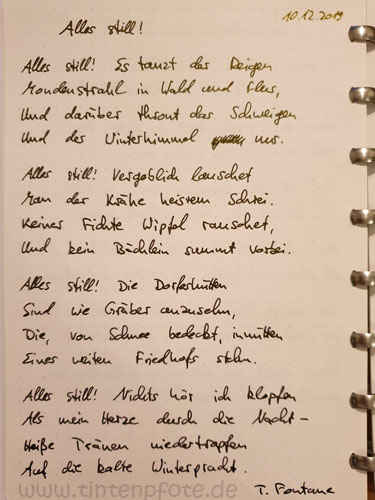 10.12.2019
Alles still!
Alles still! Es tanzt den Reigen
Mondenstrahl in Wald und Flur,
Und darüber thront das Schweigen
Und der Winterhimmel nur.
Alles still! Vergeblich lauschet
Man der Krähe heisrem Schrei.
Keiner Fichte Wipfel rauschet,
Und kein Bächlein summt vorbei.
Alles still! Die Dorfeshütten
Sind wie Gräber anzusehn,
Die, von Schnee bedeckt, inmitten
Eines weiten Friedhofs stehn.
Alles still! Nichts hör ich klopfen
Als mein Herze durch die Nacht –
Heiße Tränen niedertropfen
Auf die kalte Winterpracht.
T. Fontane
www.tintenpfote.de